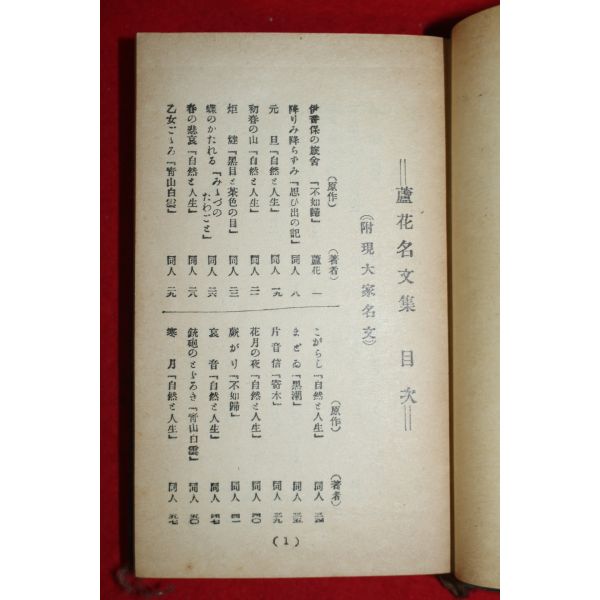 蘆花名文集 目次
(附現大家名文)
(原作) (著者)
伊香保の旅舍『不如歸』 蘆花 一
降りみ降らずみ『思ひ出の記』 同人 八
元旦『自然と人生』 同人 一九
初春の山『自然と人生』 同人 二一
炬燵『黑目と茶色の目』 同人 二三
蝶のかたれる『みゝづのたわごと』 同人 二六
春の悲哀『自然と人生』 同人 二八
乙女ごゝろ『靑山白雲』 同人 二九
(原作) (著者)
こがらし『自然と人生』 同人 三四
まどゐ『黑潮』 同人 三五
片音信『寄木』 同人 三九
花月の夜『自然と人生』 同人 四〇
蕨がり『不如歸』 同人 四一
哀音『自然と人生』 同人 四七
銃砲のとゞろき『靑山白雲』 同人 五〇
寒月『自然と人生』 同人 五七
(1)